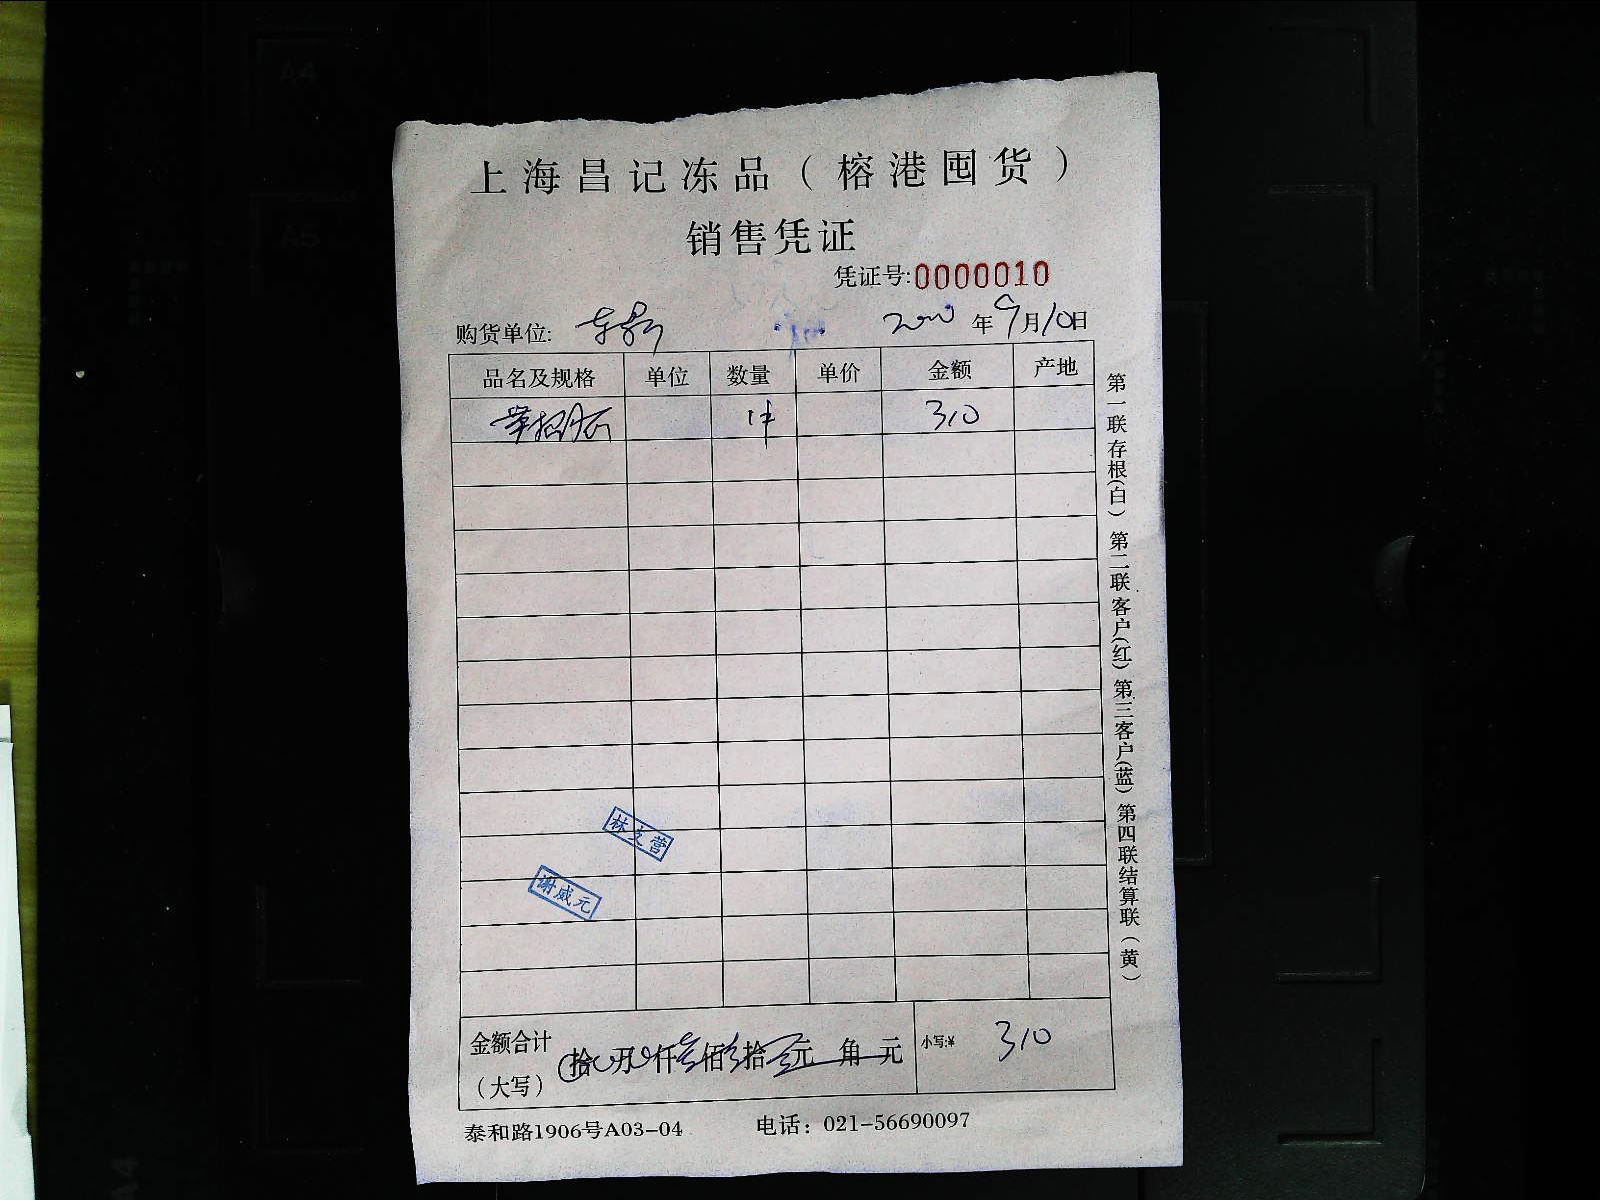 上海昌记冻品（榕港囤货）
销售凭证
凭证号:0000010
购货单位: 年9月10日
品名及规格 单位 数量 单价 金额 产地
1件 310
林文营
谢威元
金额合计（大写） 拾 万 仟 佰 拾 元 角 元 小写:¥ 310
泰和路1906号A03-04 电话：021-56690097
第一联存根(白) 第二联客户(红) 第三客户(蓝) 第四联结算联（黄）
A4
A5